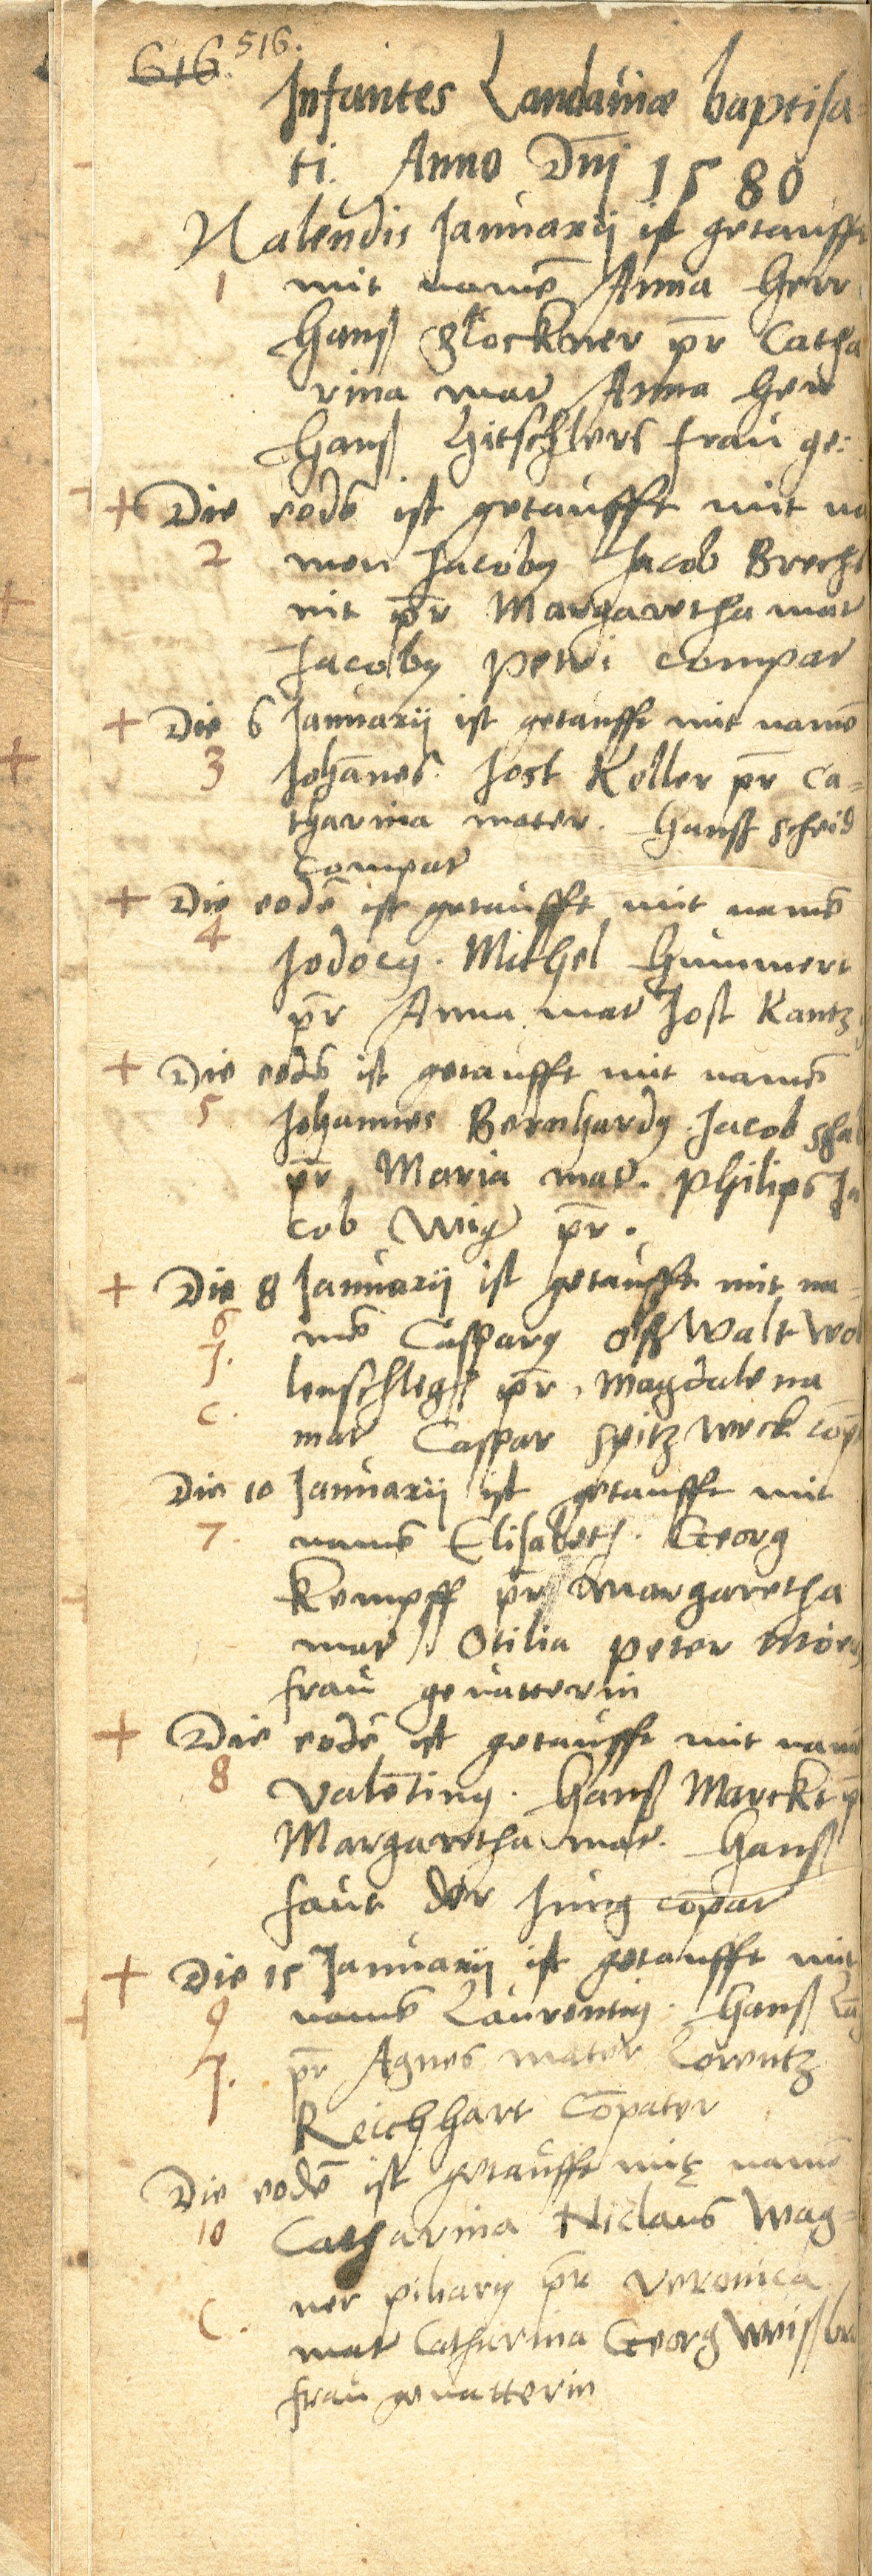 616. 516.
Infantes Landaviæ baptisa=
ti. Anno Dnj 1580
Kalendis Januarij ist getaufft
1 mit namē Anna Herr
Hanß glockner pr Catha
rina mat Anna Herr
Hanß Hitschlers frau ge:
+ Die eodē ist getaufft mit na
2 men Jacoby Jacob Brecht
nit pr Margaretha mat
Jacoby petri compat
+ Die 6 Januarij ist getaufft mit namē
3 Johānes. Jost Keller pr Ca=
tharina mater. Hanß scheid
compat
+ Die eodē ist getaufft mit namē
4 Jodocy. Michel Hummert
pr Anna mat Jost Kantz
+ Die eodē ist getaufft mit namē
5 Johannes Bernhardy. Jacob
pr Maria mat. Philips Ja
cob pr.
+ Die 8 Januarij ist getaufft mit na=
6 mē Caspary Oßwalt Wol
J. lenschleg pr. Magdalena
C. mat Caspar spitzweck comp
Die 10 Januarij ist getaufft mit
7. namē Elisabeth. Georg
Kempff pr Margaretha
mat. Otilia peter
frau gevatterin
+ Die eodē ist getaufft mit namē
8 Valētiny. Hanß Marckt p
Margaretha mat. Hanß
faut der Jung cōpat
+ Die 15 Januarij ist getaufft mit
9 namē Laurentiy. Hanß
J. pr Agnes mater Lorentz
Reichhart Cōpater
Die eodē ist getaufft mit namē
10 Catharina Niclaus Wag=
ner pr Veronica
C. mat Catharina Georg
frau gevatterin